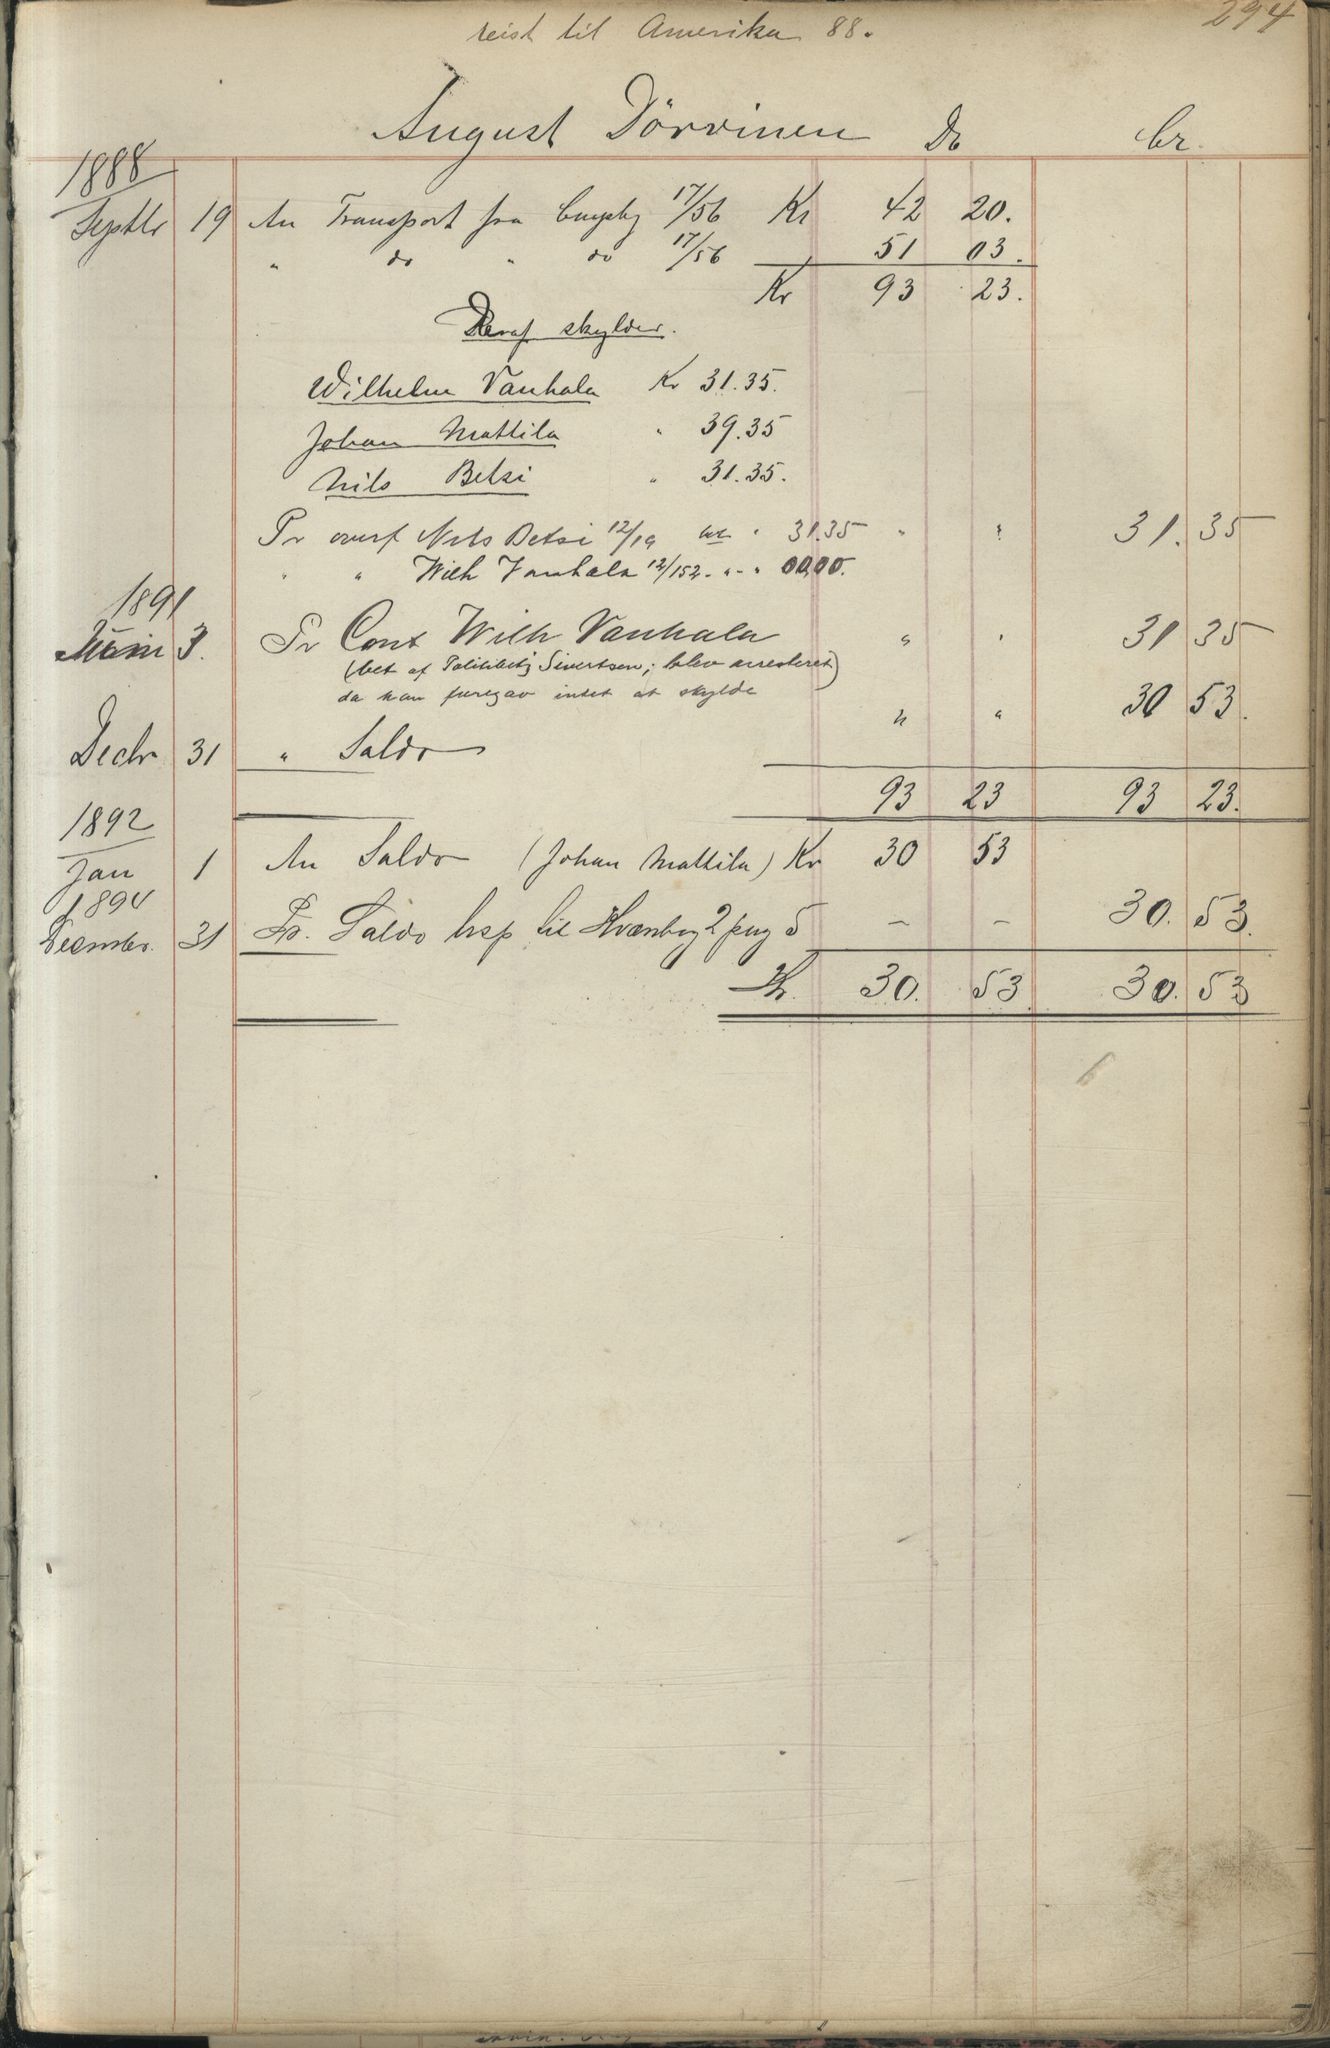 294
reist til Amerika 88.
August Dörvinen Do Cr.
1888
Septbr 19 An Transport fra 17/56 Kr 42 20.
" do " do 17/56 51 03.
Kr 93 23.
Deraf skylder.
Wilhelm Vanhala Kr 31.35.
Johan Mattila " 39.35
Nils Betsi " 31.35.
Pr overf Nils Betsi 12/19 " 31.35 " " 31.35
" " Wilh Vanhala 12/152 - " - " 00,00.
1891
3. Pr Cont Wilh Vanhala " " 31 35
(bet af Sivertsen; blev arresteret)
da han foregav intet at skylde " " 30 53.
Decbr 31 " Saldo
93 23 93 23.
1892
Jan 1 An Saldo (Johan Mattila) Kr 30 53
1894
December. 31 Pr. Saldo til 2 pag 5 - - 30. 53.
Kr. 30. 53 30. 53